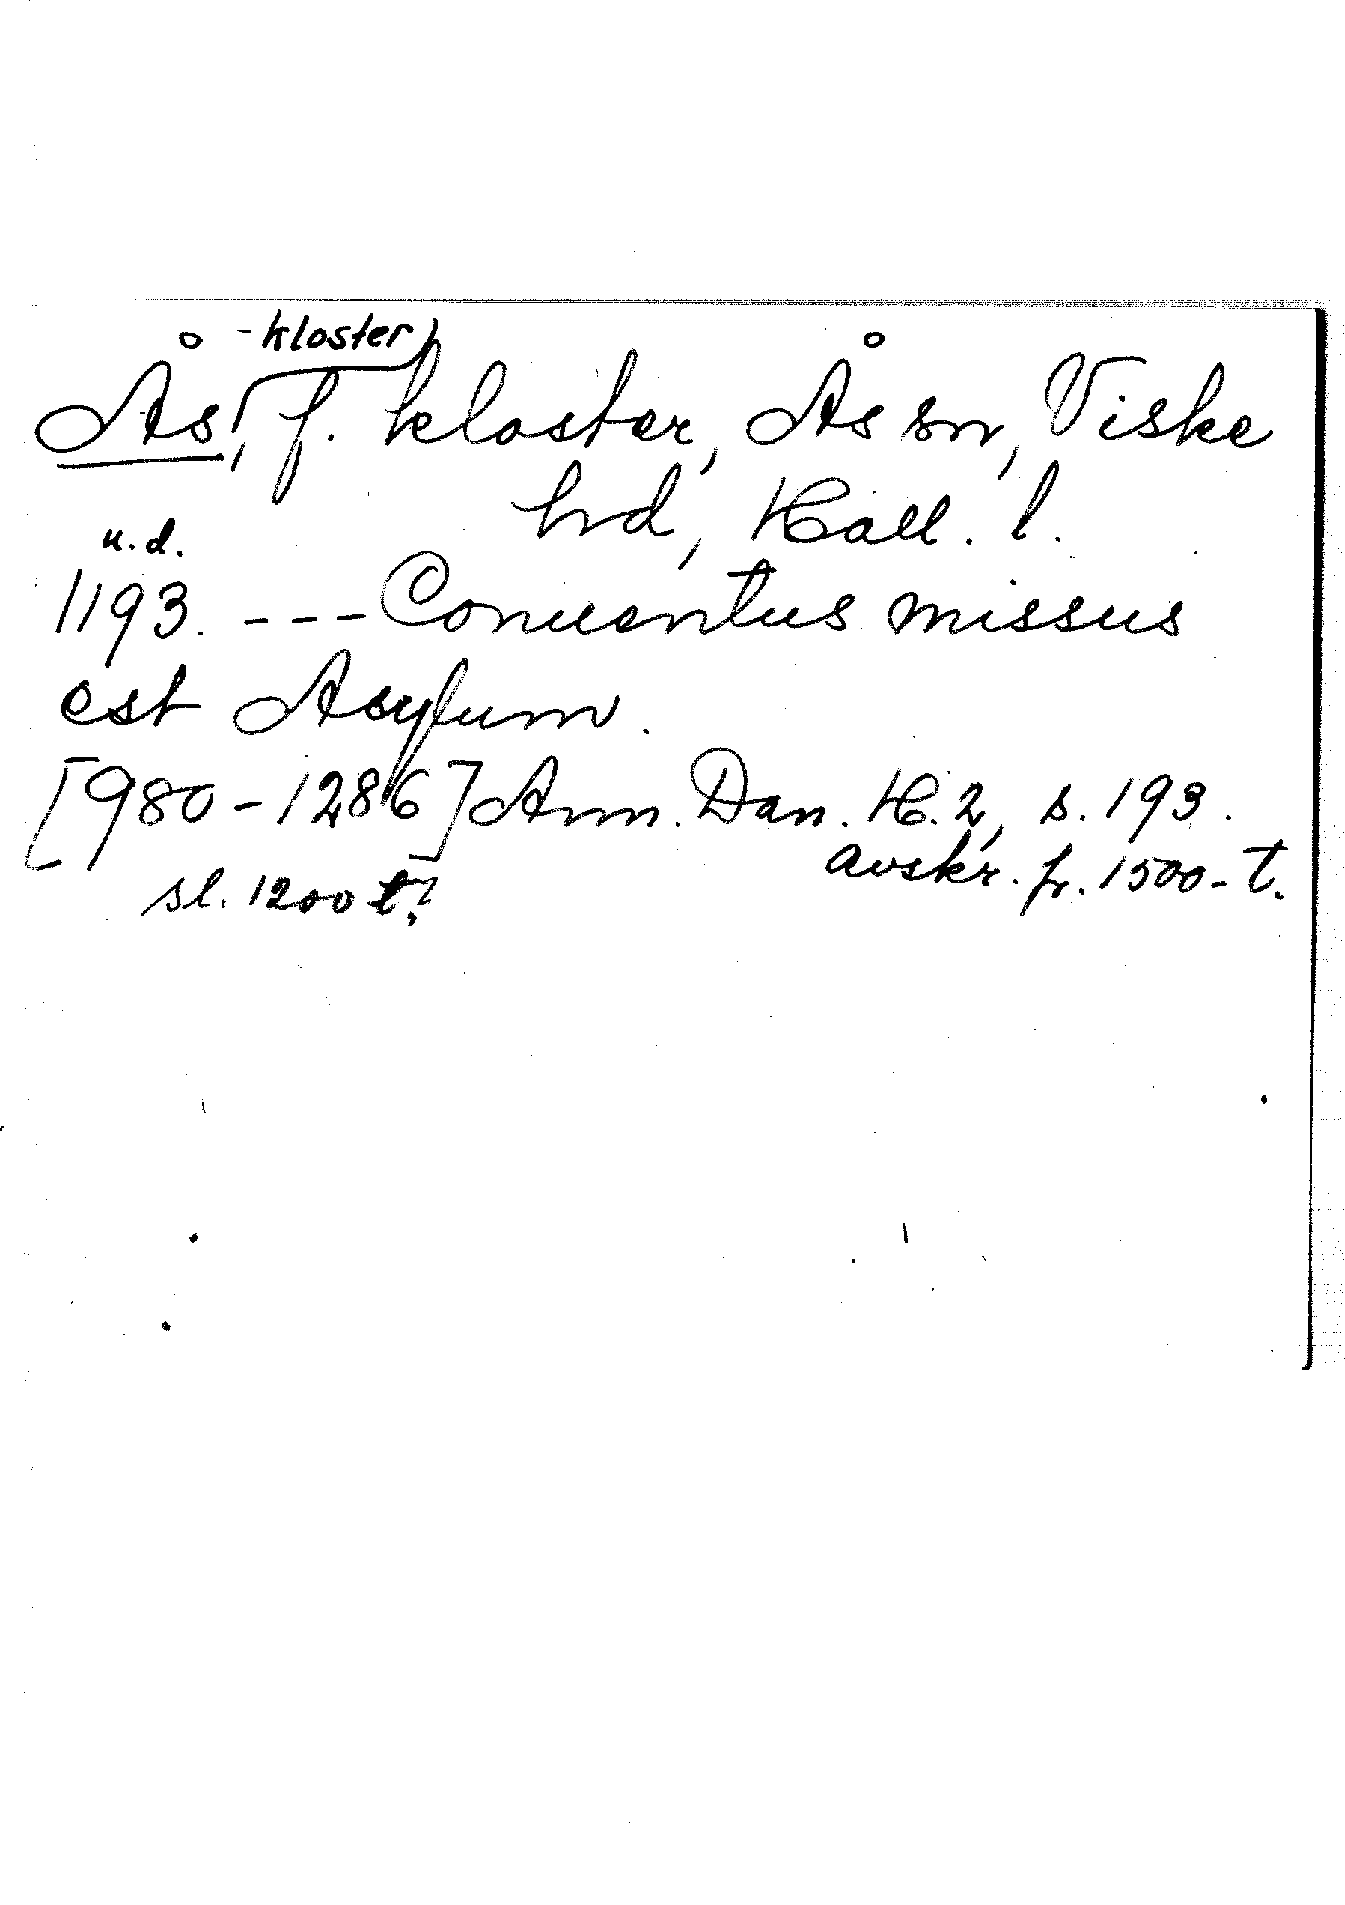 -kloster
Ås, f. kloster, Ås sn, Viske
hd, Hall. l.
u.d.
1193. --- Conuentus missus
est Asylum.
[980-1286] Ann. Dan. H.2, s. 193.
avskr. fr. 1500-t.
sl. 1200 t.?